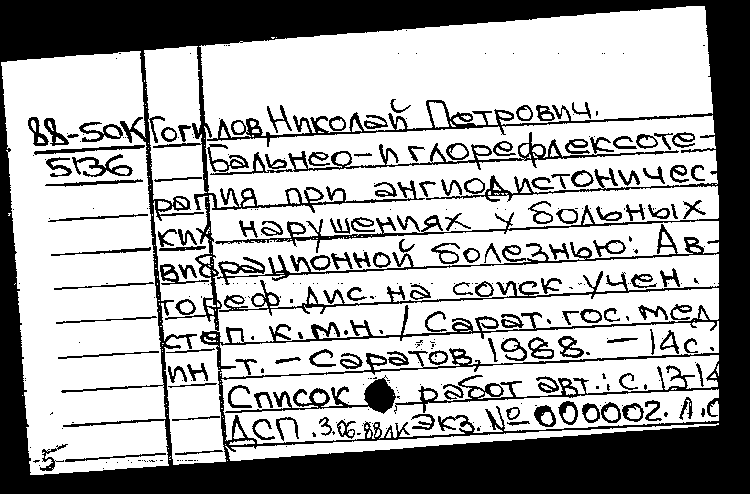 88-50К Гогилов, Николай Петрович.
5136 Бальнео-иглорефлексоте-
рапия при ангиодистоничес-
ких нарушениях у больных
вибрационной болезнью: Ав-
тореф. дис. на соиск. учен.
степ. к.м.н. / Сарат. гос. мед.
ин-т. - Саратов, 1988. - 14с.
Список работ авт.: с. 13-14
ДСП. 3.06.88 Экз. № 000002.
5